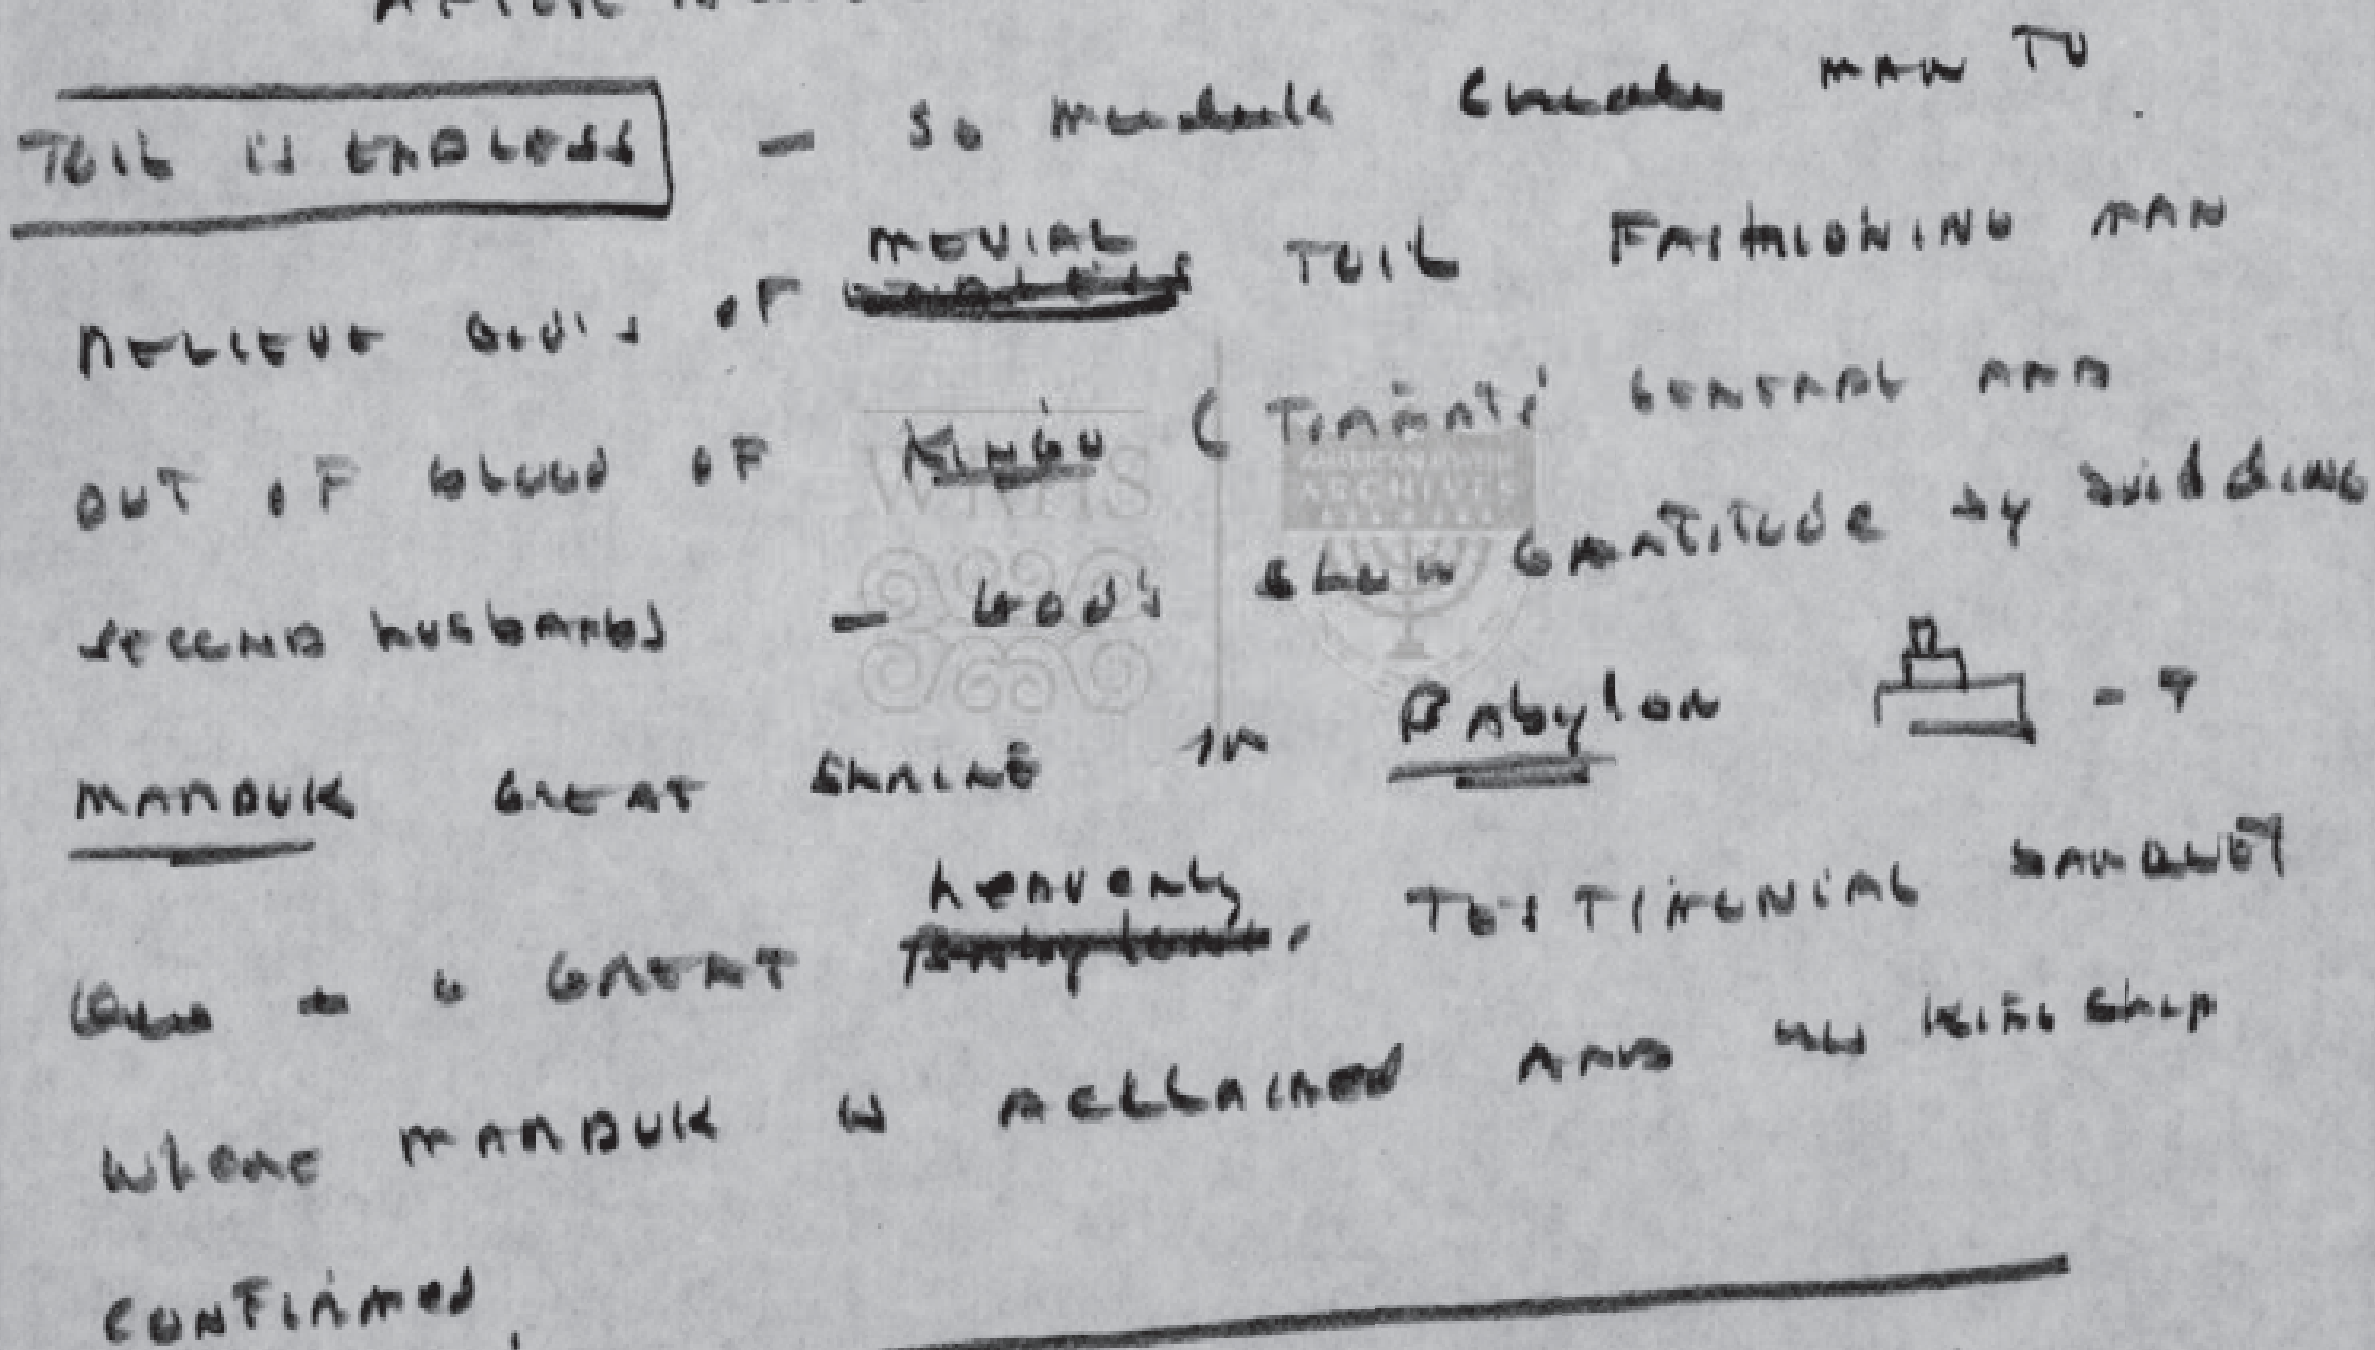 AFTER
TOIL IS ENDLESS — So Marduk creates MAN TO
MENIAL
RELIEVE GOD'S OF TOIL FASHIONING MAN
OUT OF BLOOD OF KINGU (TIAMAT'S GENERAL AND
SECOND HUSBAND) — GOD'S SHOW GRATITUDE BY BUILDING
MARDUK GREAT SHRINE IN Babylon
heavenly
GREAT TESTIMONIAL BANQUET
WHERE MARDUK IS ACCLAIMED AND his KINGSHIP
CONFIRMED.
WRHS
AMERICAN JEWISH
ARCHIVES